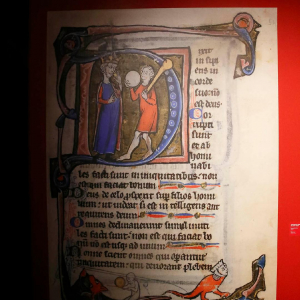 D ixit
in sipi
ens in
corde
suo nō
est deus
Cor
rupti
sunt
et ab
homi
nabi
les facti sunt in iniquitatibus: non
est qui faciat bonum
Deus de celo prospexit sup filios homi
num: ut videat si est intelligens aut
requirens deum
Omnes declinaverunt simul inuti
les facti sunt: non est qui faciat bo
num non est usque ad unum
Nonne scient omnes qui operantur
iniquitatem: qui devorant plebem